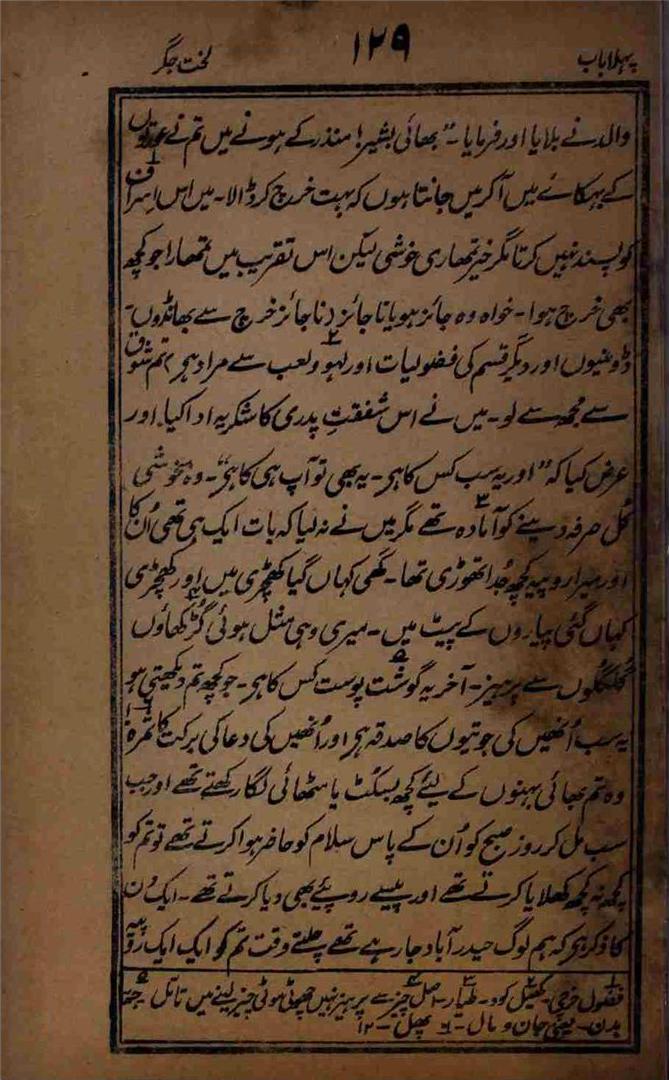 پہلا باب ۱۲۹ لخت جگر
والد نے بلایا اور فرمایا۔ "بھائی بشیر! منذر کے ہونے میں تم نے عورتوں
کے بہکائے میں آکر میں جانتا ہوں کہ بہت خرچ کر ڈالا۔ میں اس اسراف
کو پسند نہیں کرتا مگر خیر تمھاری خوشی لیکن اس تقریب میں تمھارا جو کچھ
بھی خرچ ہوا۔ خواہ وہ جائز ہو یا ناجائز (ناجائز خرچ سے بھانڈوں۔
ڈومنیوں اور دیگر قسم کی فضولیات اور لہو و لعب سے مراد ہی) تم شوق
سے مجھ سے لو۔ میں نے اس شفقتِ پدری کا شکریہ ادا کیا۔ اور
عرض کیا کہ "اور یہ سب کس کا ہی۔ یہ بھی تو آپ ہی کا ہی"۔ وہ بخوشی
کُل صرفہ دینے کو آمادہ تھے مگر میں نے نہ لیا کہ بات ایک ہی تھی اُن کا
اور میرا روپیہ کچھ جُدا تھوڑی تھا۔ گھی کہاں گیا کھچڑی میں اور کھچڑی
کہاں گئی پیاروں کے پیٹ میں۔ میری وہی مثل ہوئی گُڑ کھاؤں
گُلگُلوں سے پرہیز۔ آخر یہ گوشت پوست کس کا ہی۔ جو کچھ تم دیکھتی ہو
یہ سب اُنھیں کی جوتیوں کا صدقہ ہی اور اُنھیں کی دعا کی برکت کا ثمرہ
وہ تم بھائی بہنوں کے لیئے کچھ بسکٹ یا مٹھائی لگا رکھتے تھے اور جب
سب مل کر روز صبح کو اُن کے پاس سلام کو حاضر ہوا کرتے تھے تو تم کو
کچھ نہ کچھ کھلایا کرتے تھے اور پیسے روپئے بھی دیا کرتے تھے۔ ایک دن
کا ذکر ہی کہ ہم لوگ حیدرآباد جا رہے تھے چلتے وقت تم کو ایک ایک روپیہ
۱ فضول خرچی۔ ۲ کھیل کود۔ ۳ طیار۔ ۴ اصل چیز سے پرہیز نہیں چھوٹی موٹی چیز لینے میں تامّل ۵
بدن۔ یعنی جان و مال۔ ۶ پھل۔ ۱۲